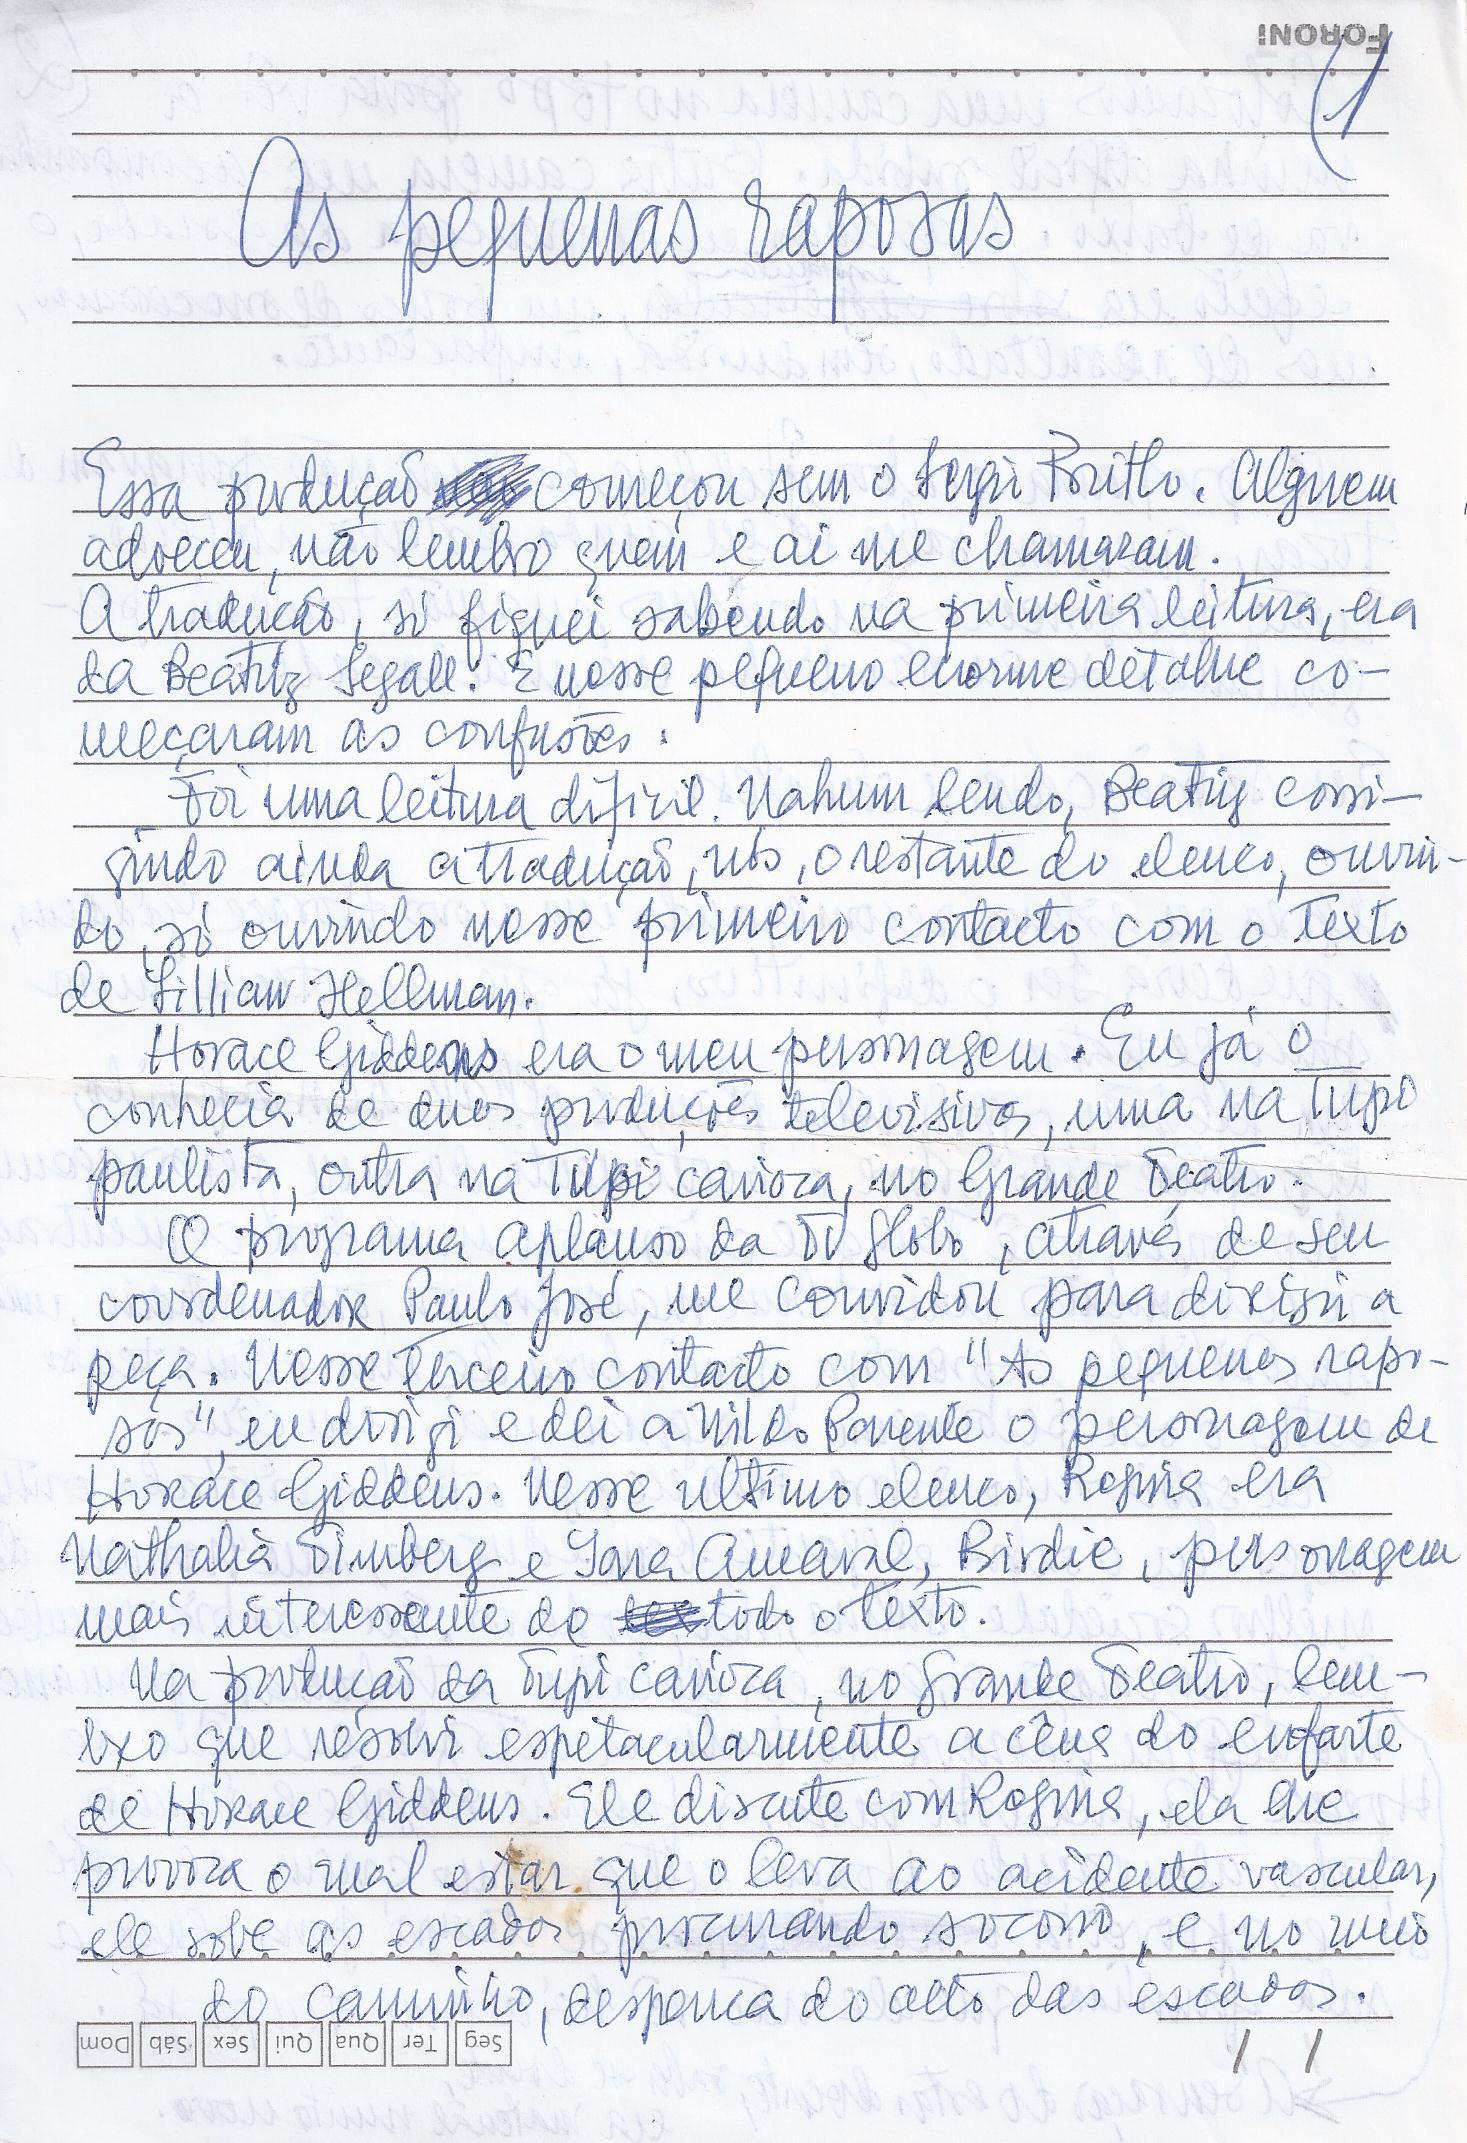 FORONI
1
As pequenas raposas
Essa produção começou sem o Sergio Britto. Alguem
adoeceu, não lembro quem e ai me chamaram.
A tradução, só fiquei sabendo na primeira leitura, era
da Beatriz Segall. E nesse pequeno enorme detalhe co-
meçaram as confusões.
Foi uma leitura dificil. Nahum lendo, Beatriz corri-
gindo ainda a tradução, nós, o restante do elenco, ouvin-
do, só ouvindo nesse primeiro contacto com o texto
de Lillian Hellman.
Horace Giddens era o meu personagem. Eu já o
conhecia de duas produções televisivas, uma na Tupi
paulista, outra na Tupi carioca, no Grande Teatro.
O programa Aplauso da TV Globo, através de seu
coordenador Paulo José, me convidou para dirigir a
peça. Nesse terceiro contacto com "As pequenas rapo-
sas", eu dirigi e dei a Nildo Parente o personagem de
Horace Giddens. Nesse ultimo elenco, Regina era
Nathalia Timberg e Yara Amaral, Birdie, personagem
mais interessante de todo o texto.
Na produção da Tupi carioca, no Grande Teatro, lem-
bro que resolvi espetacularmente a cêna do enfarte
de Horace Giddens. Ele discute com Regina, ela lhe
provoca o mal estar que o leva ao acidente vascular,
ele sobe as escadas procurando socorro, e no meio
do caminho, despenca do alto das escadas.
Seg Ter Qua Qui Sex Sáb Dom
/ /